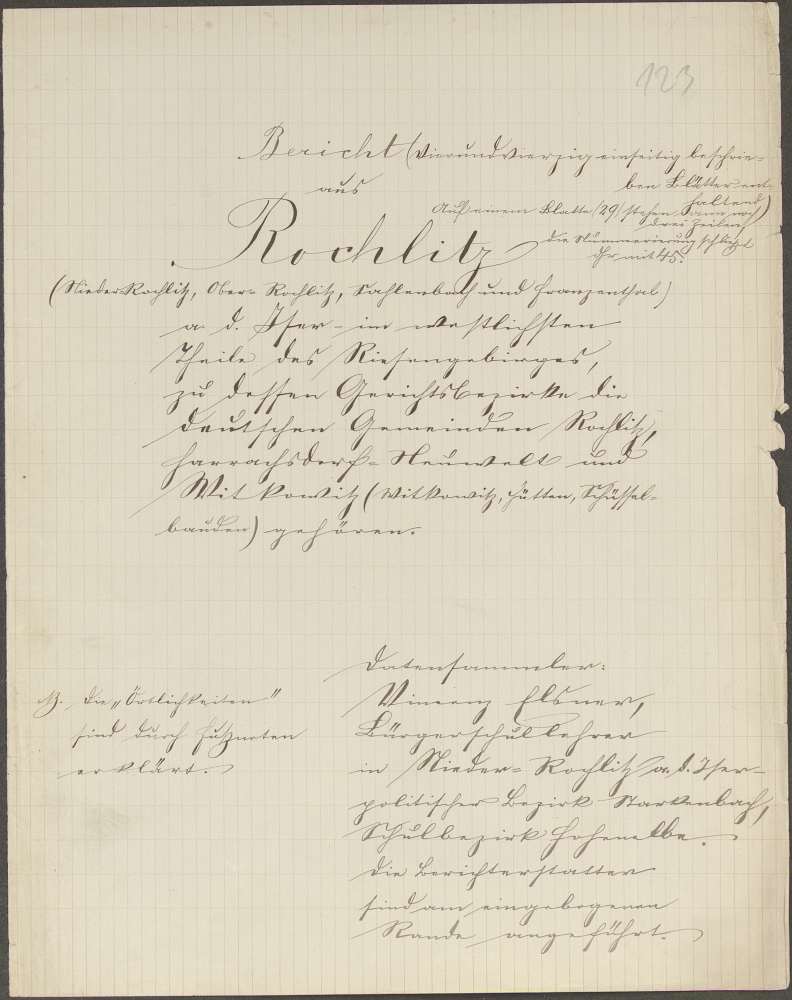 123
Bericht (Vierundvierzig einseitig beschrie-
aus ben Blätter ent-
haltend)
Auf einem Blatte (29) stehen dann noch
drei Zeilen,
Rochlitz
die Nummerierung schließt
Ihr mit 45.
(Nieder-Rochlitz, Ober-Rochlitz, Sahlenbach und Franzenthal)
a. d. Iser - im westlichsten
Theile des Riesengebirges,
zu dessen Gerichtsbezirke die
deutschen Gemeinden Rochlitz,
Harrachsdorf-Neuwelt und
Witkowitz (Witkowitz, Hütten, Schüssel-
bauden) gehören.
Datensammler:
Vincenz Elsner,
Bürgerschullehrer
in Nieder-Rochlitz a. d. Iser -
politischer Bezirk Starkenbach,
Schulbezirk Hohenelbe.
Die Berichterstatter
sind am eingebogenen
Rande angeführt.
NB. Die „Örtlichkeiten"
sind durch Fußnoten
erklärt.